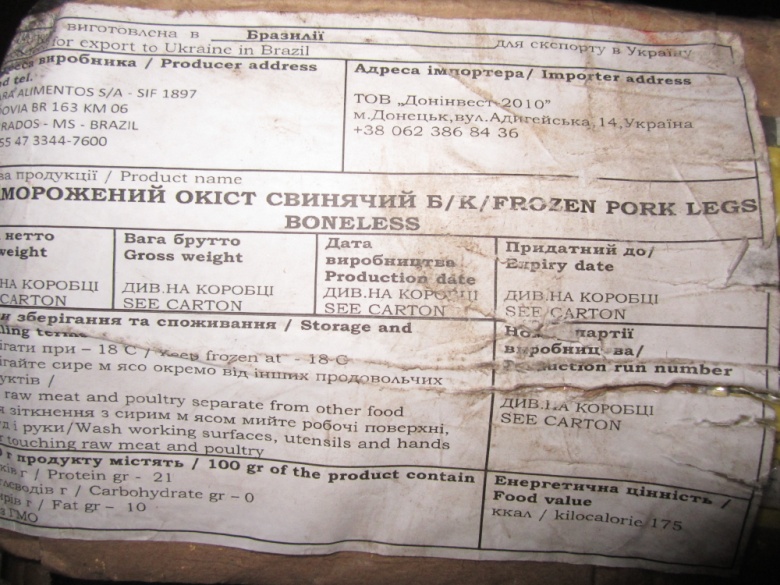 виготовлена в Бразилії для експорту в Україну
for export to Ukraine in Brazil
виробника / Producer address
Адреса імпортера/ Importer address
tel.
ALIMENTOS S/A - SIF 1897
BR 163 KM 06
- MS - BRAZIL
55 47 3344-7600
ТОВ „Донінвест-2010”
м.Донецьк,вул.Адигейська,14,Україна
+38 062 386 84 36
продукції / Product name
МОРОЖЕНИЙ ОКІСТ СВИНЯЧИЙ Б/К/FROZEN PORK LEGS
BONELESS
нетто
weight
НА КОРОБЦІ
CARTON
Вага брутто
Gross weight
ДИВ.НА КОРОБЦІ
SEE CARTON
Дата
виробництва
Production date
ДИВ.НА КОРОБЦІ
SEE CARTON
Придатний до/
Expiry date
ДИВ.НА КОРОБЦІ
SEE CARTON
зберігання та споживання / Storage and
terms
при – 18 С / Keep frozen at - 18 C
сире м ясо окремо від інших продовольчих
/
raw meat and poultry separate from other food
зіткнення з сирим м ясом мийте робочі поверхні,
і руки/Wash working surfaces, utensils and hands
touching raw meat and poultry
Номер партії
виробництва/
Production run number
ДИВ.НА КОРОБЦІ
SEE CARTON
г продукту містять / 100 gr of the product contain
г / Protein gr - 21
г / Carbohydrate gr – 0
г / Fat gr – 10
ГМО
Енергетична цінність /
Food value
ккал / kilocalorie 175